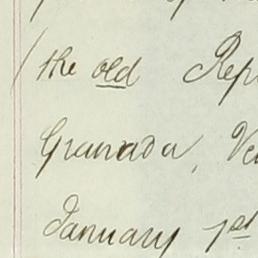 (the old Rep
Granada, Ve
January 1st